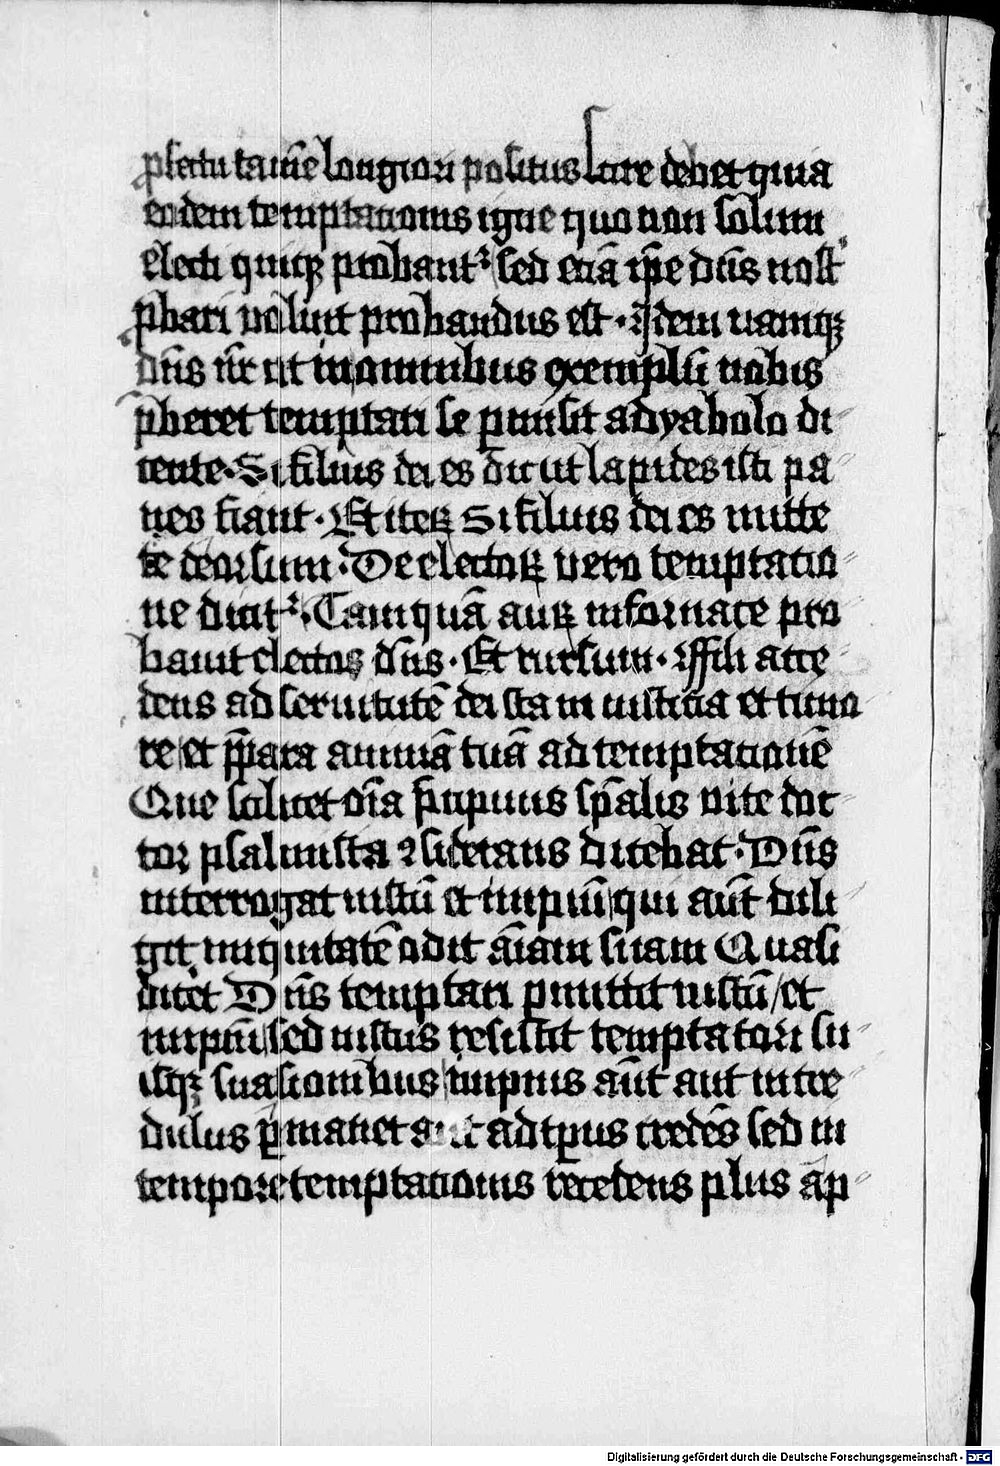 ꝓfectu tamē longiori positus scire debet quia
eodem temptationis igne quo non solum
electi quiqꝫ probantᷣ sed eciā ip̄e dn̄s nost̾
ꝓbari voluit probandus est · Idem namqꝫ
dn̄s nr̄ ut in omnibus exemplū nobis
p̄beret temptari se ꝑmisit a dyabolo di
cente · Si filius dei es dic ut lapides isti pa
nes fiant · Et iteꝝ Si filius dei es mitte
te deorsum · De electoꝝ vero temptatio
ne dicitᷣ · Tamquā auꝝ in fornace pro
bauit electos dn̄s · Et rursum · Ffili acce
dens ad seruitutē dei sta in iusticia et timo
re et p̄para animā tuā ad temptationē
Que scilicet oīa p̄cipuus sp̄alis vite doc
tor psalmista ꝯsiderans dicebat · Dn̄s
interrogat iustū et impiū qui aut̄ dili
git iniquitatē odit aīam suam Quasi
dicet Dn̄s temptari ꝑmittit iustū / et
impiū sed iustus resistit temptatori su
isqꝫ suasionibus impius aut̄ aut incre
dulus ꝑmanet aut ad tp̄us credēs sed in
tempore temptationis recedens plus ap